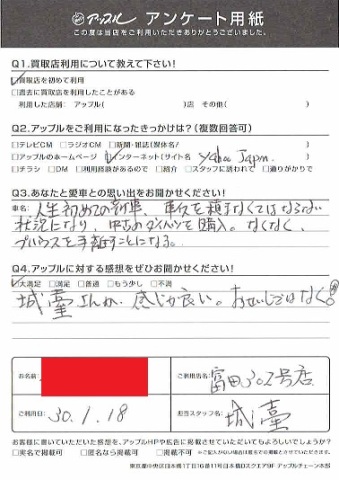 アップル アンケート用紙
この度は当店をご利用いただきありがとうございました。
Q1.買取店利用について教えて下さい!
☑買取店を初めて利用
□過去に買取店を利用したことがある
利用した店舗: アップル( )店 その他( )
Q2.アップルをご利用になったきっかけは?(複数回答可)
□テレビCM □ラジオCM □新聞・雑誌(媒体名/ )
□アップルのホームページ ☑インターネット(サイト名 yahoo Japan. )
□チラシ □DM □利用経験があるので □紹介 □スタッフに誘われて □通りがかりで
Q3.あなたと愛車との思い出をお聞かせください!
車名: 人生初めての新車、車名を
状況になり、中古の を購入。なくなく、
プリウスを手放すことになる。
Q4.アップルに対する感想をぜひお聞かせください!
☑大満足 □満足 □普通 □もう少し □不満
城臺さんが、感じが良い。おせじではなく!
お名前:
ご利用店名: 富田302号店
ご利用日: 30.1.18
担当スタッフ名: 城臺
お客様に書いていただいた感想を、アップルHPや広告に掲載させていただいてもよろしいでしょうか?
□実名で掲載可 □匿名なら掲載可 □掲載不可
東京都中央区日本橋1丁目16番11号日本橋Dスクエア9F アップルチェーン本部